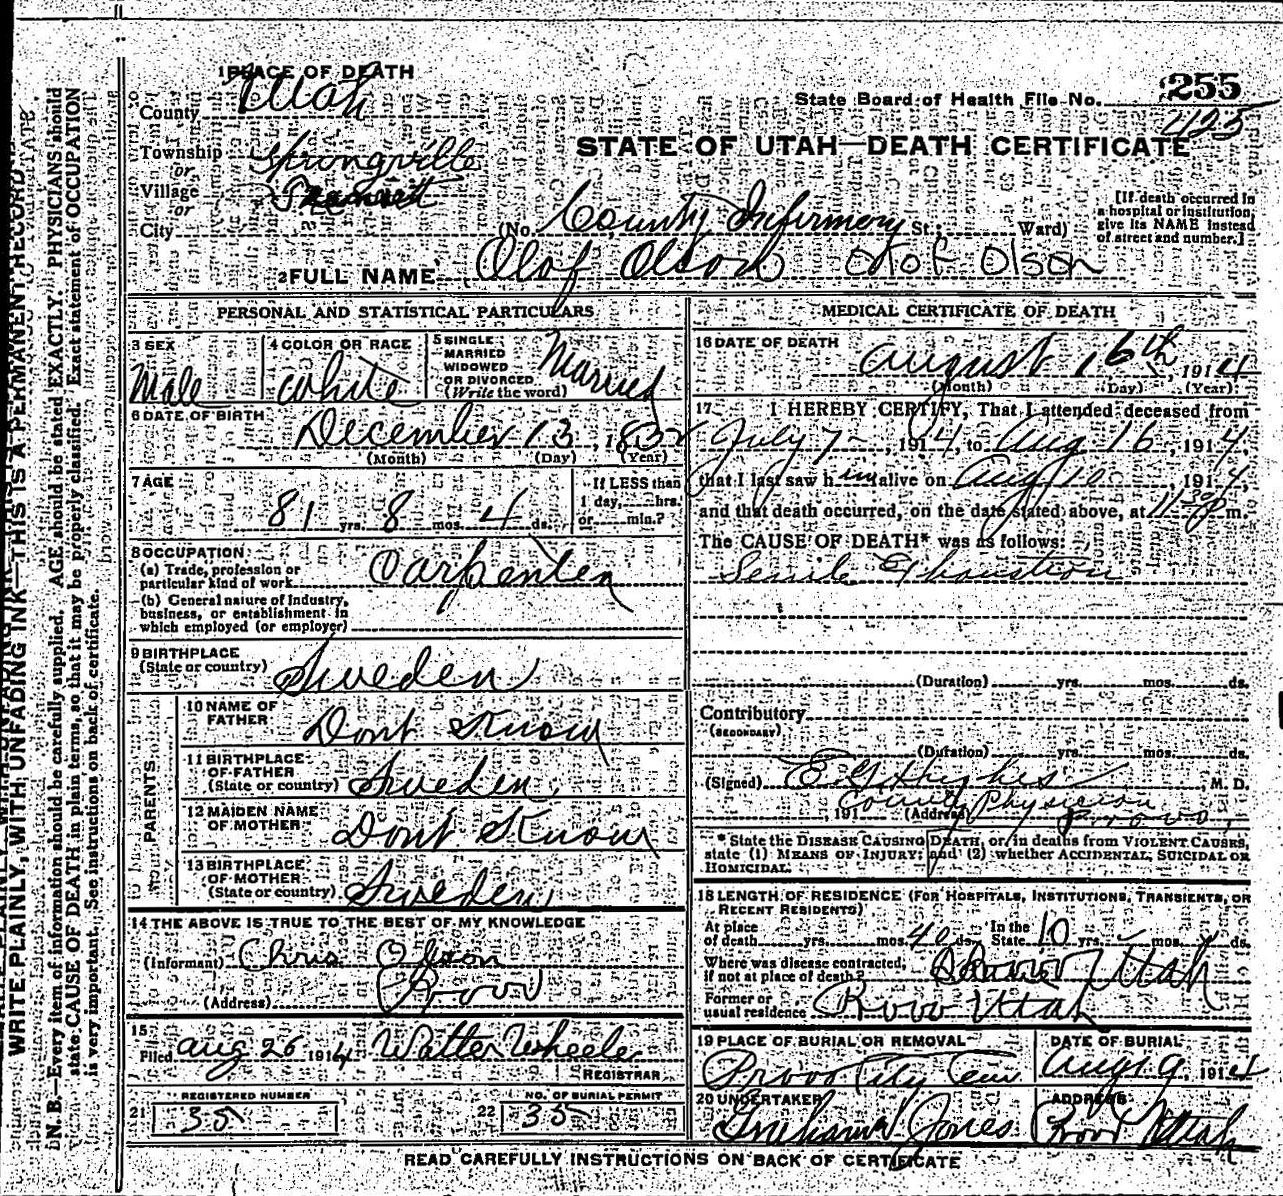 1 PLACE OF DEATH
County Utah
State Board of Health File No. 255
425
STATE OF UTAH—DEATH CERTIFICATE
Township Springville
or
Village
or
City
(No. County Infirmery St.; Ward)
[If death occurred in a hospital or institution, give its NAME instead of street and number.]
2 FULL NAME Olof Olson Olof Olson
PERSONAL AND STATISTICAL PARTICULARS
3 SEX Male
4 COLOR OR RACE White
5 SINGLE MARRIED WIDOWED OR DIVORCED (Write the word) Married
6 DATE OF BIRTH December 13, 1832
(Month) (Day) (Year)
7 AGE 81 yrs. 8 mos. 4 ds.
If LESS than 1 day, hrs. or min.?
8 OCCUPATION
(a) Trade, profession or particular kind of work Carpenter
(b) General nature of industry, business, or establishment in which employed (or employer)
9 BIRTHPLACE (State or country) Sweden
PARENTS
10 NAME OF FATHER Dont Know
11 BIRTHPLACE OF FATHER (State or country) Sweden
12 MAIDEN NAME OF MOTHER Dont Know
13 BIRTHPLACE OF MOTHER (State or country) Sweden
14 THE ABOVE IS TRUE TO THE BEST OF MY KNOWLEDGE
(Informant) Chris Olson
(Address) Provo
15 Filed Aug 26 1914 Walter Wheeler
REGISTRAR
REGISTERED NUMBER
21 35
NO. OF BURIAL PERMIT
22 35
MEDICAL CERTIFICATE OF DEATH
16 DATE OF DEATH August 16th, 1914
(Month) (Day) (Year)
17 I HEREBY CERTIFY, That I attended deceased from
July 7-, 1914, to Aug 16, 1914,
that I last saw him alive on Aug 10, 1914
and that death occurred, on the date stated above, at 11 30 P m.
The CAUSE OF DEATH* was as follows:
Senile Exhaustion
(Duration) yrs. mos. ds.
Contributory
(SECONDARY)
(Duration) yrs. mos. ds.
(Signed) E G Hughes, M. D.
County Physician
191 (Address) Provo,
* State the DISEASE CAUSING DEATH, or, in deaths from VIOLENT CAUSES,
state (1) MEANS OF INJURY; and (2) whether ACCIDENTAL, SUICIDAL OR
HOMICIDAL.
18 LENGTH OF RESIDENCE (FOR HOSPITALS, INSTITUTIONS, TRANSIENTS, OR
RECENT RESIDENTS)
At place of death yrs. mos. 40 ds. In the State 10 yrs. mos. ds.
Where was disease contracted, if not at place of death? Provo Utah
Former or usual residence Provo Utah
19 PLACE OF BURIAL OR REMOVAL Provo City Cem
DATE OF BURIAL Aug 19, 1914
20 UNDERTAKER Graham & Jones
ADDRESS Provo Utah
READ CAREFULLY INSTRUCTIONS ON BACK OF CERTIFICATE
WRITE PLAINLY, WITH UNFADING INK—THIS IS A PERMANENT RECORD
N. B.—Every item of information should be carefully supplied. AGE should be stated EXACTLY. PHYSICIANS should
state CAUSE OF DEATH in plain terms, so that it may be properly classified. Exact statement of OCCUPATION
is very important. See instructions on back of certificate.